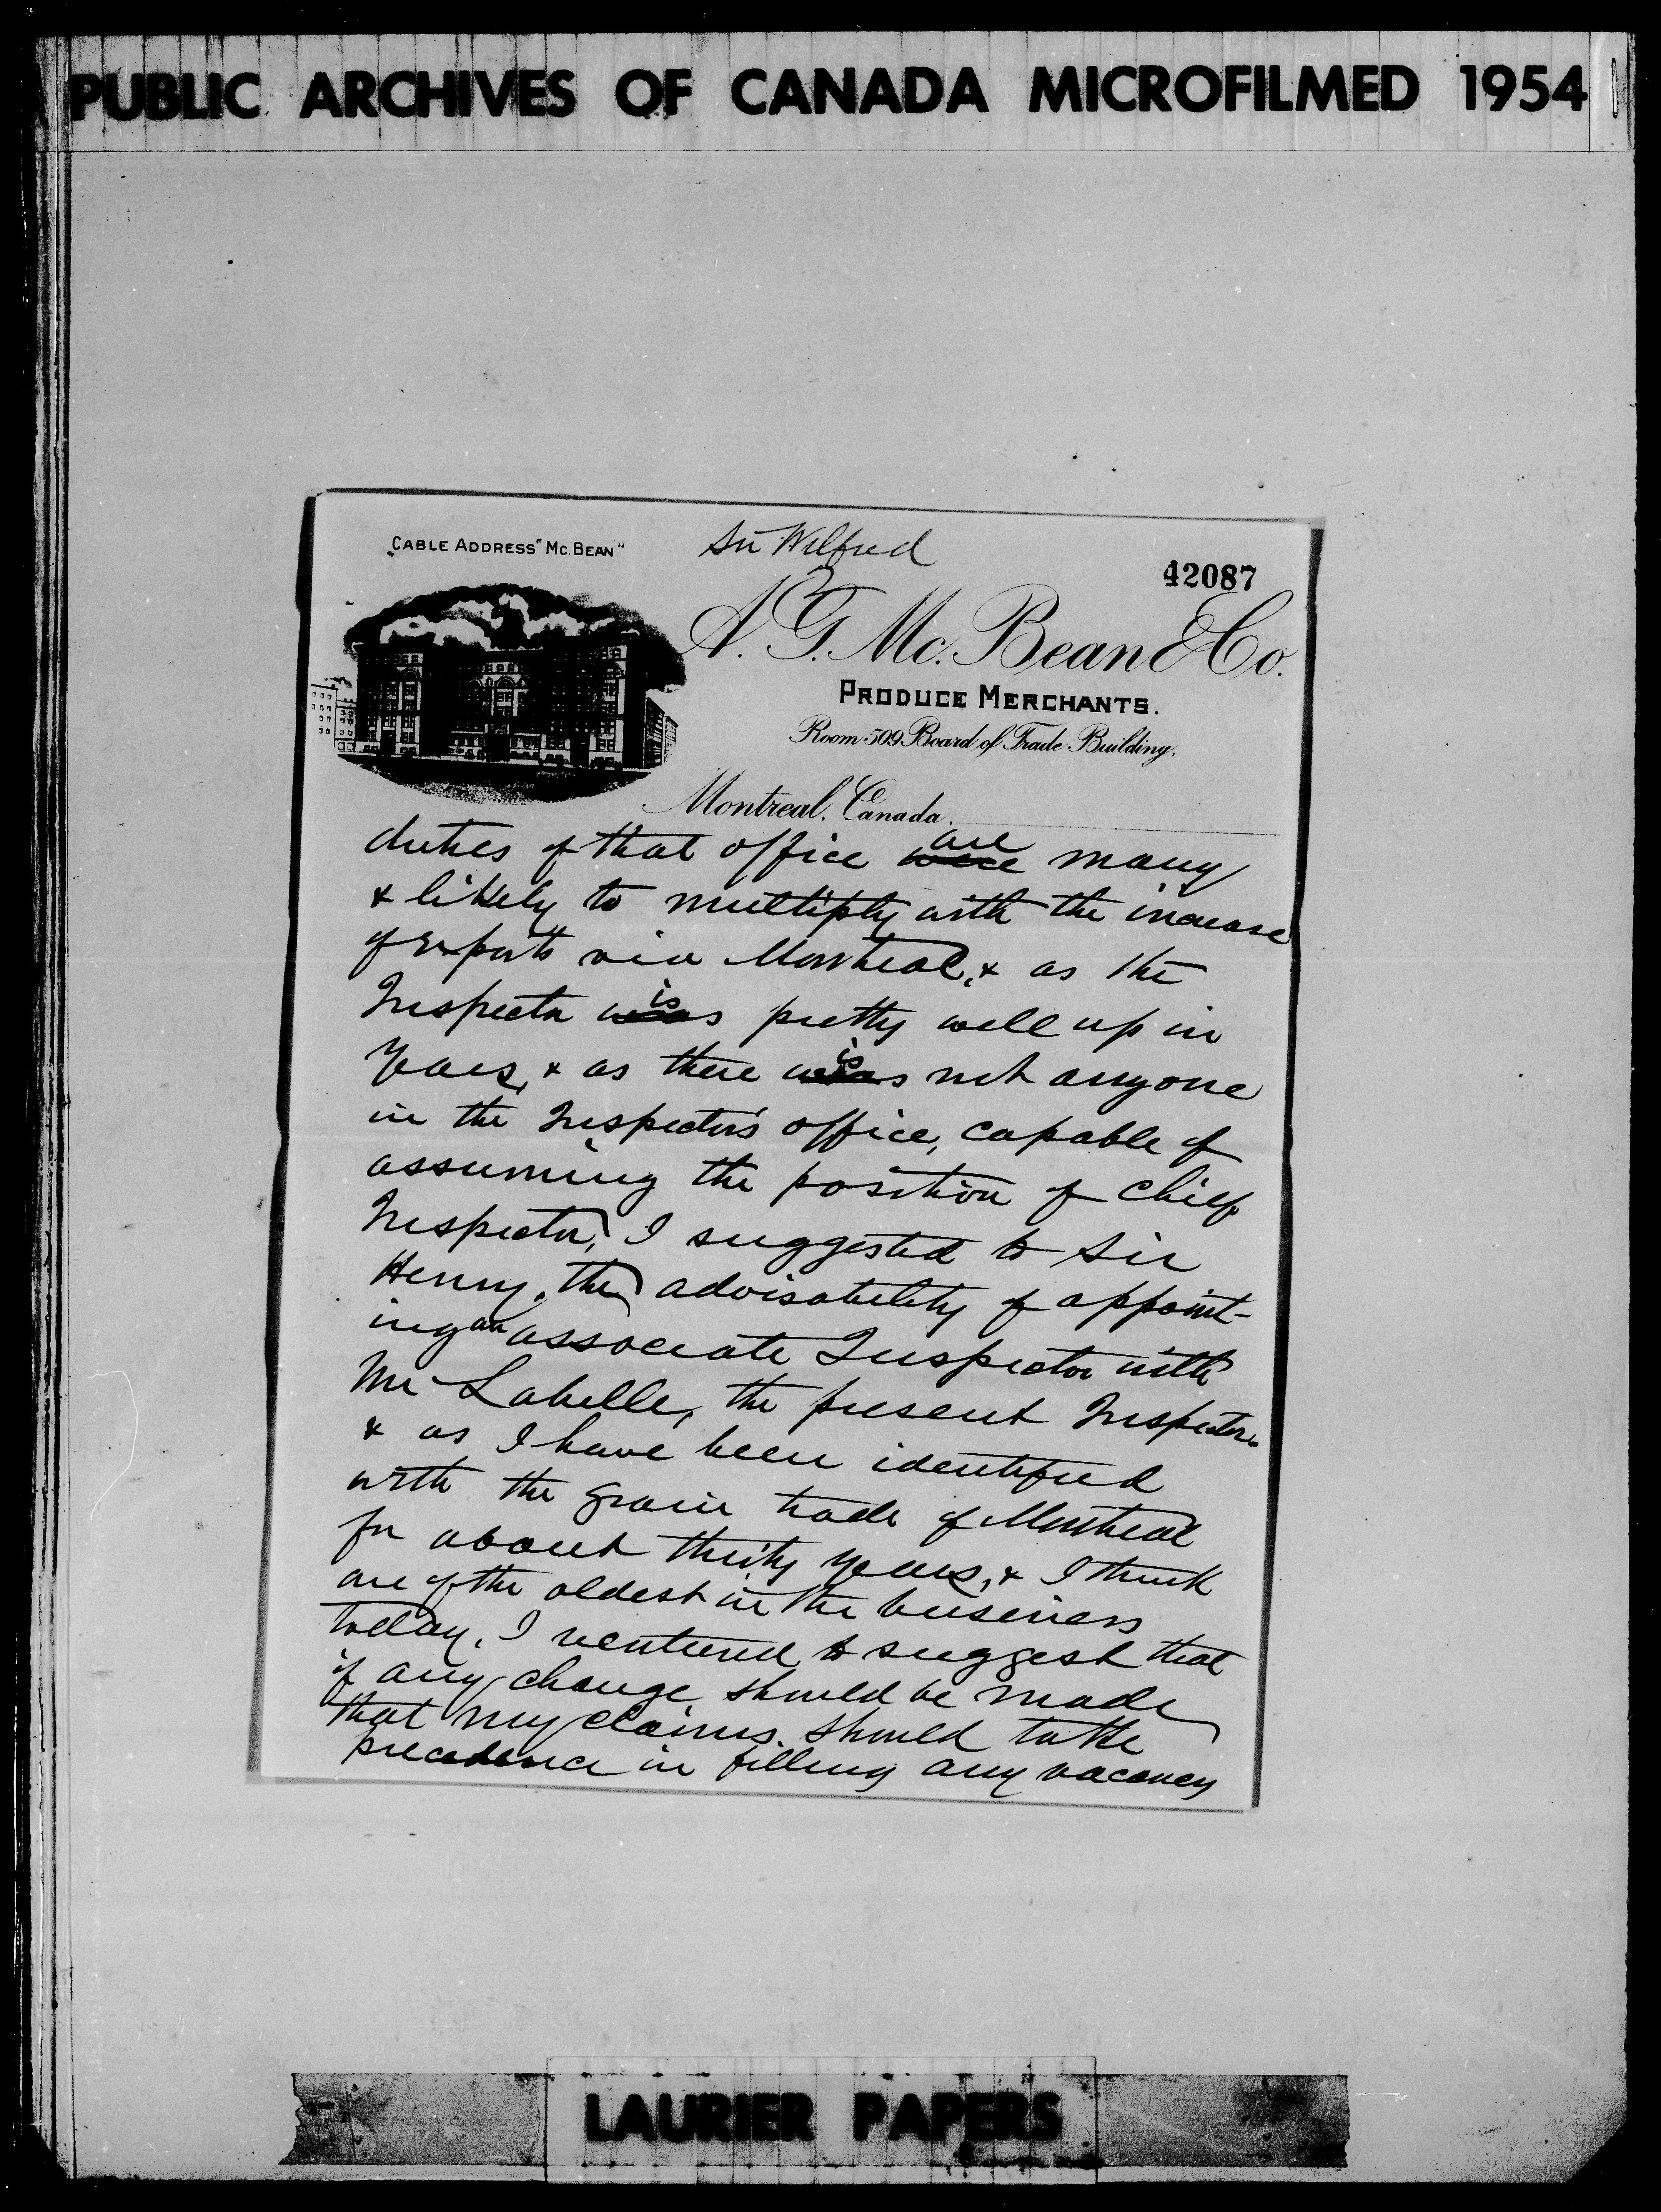 PUBLIC ARCHIVES OF CANADA MICROFILMED 1954
CABLE ADDRESS "MC. BEAN"
Sir Wilfred
42087
A. G. Mc. Bean & Co.
PRODUCE MERCHANTS.
Room 509 Board of Trade Building.
Montreal, Canada.
are
duties of that office were many
& likely to multiply with the increase
of exports via Montreal, & as the
is
Inspector was pretty well up in
is
Years, & as there was not anyone
in the Inspector's office, capable of
assuming the position of Chief
Inspector, I suggested to Sir
Henry, the advisability of appoint-
ing an associate Inspector with
Mr Labelle, the present Inspector.
& as I have been identified
with the grain trade of Montreal
for about thirty years, & I think
one of the oldest in the business
today, I ventured to suggest that
if any change should be made
that my claims should take
precedence in filling any vacancy
LAURIER PAPERS